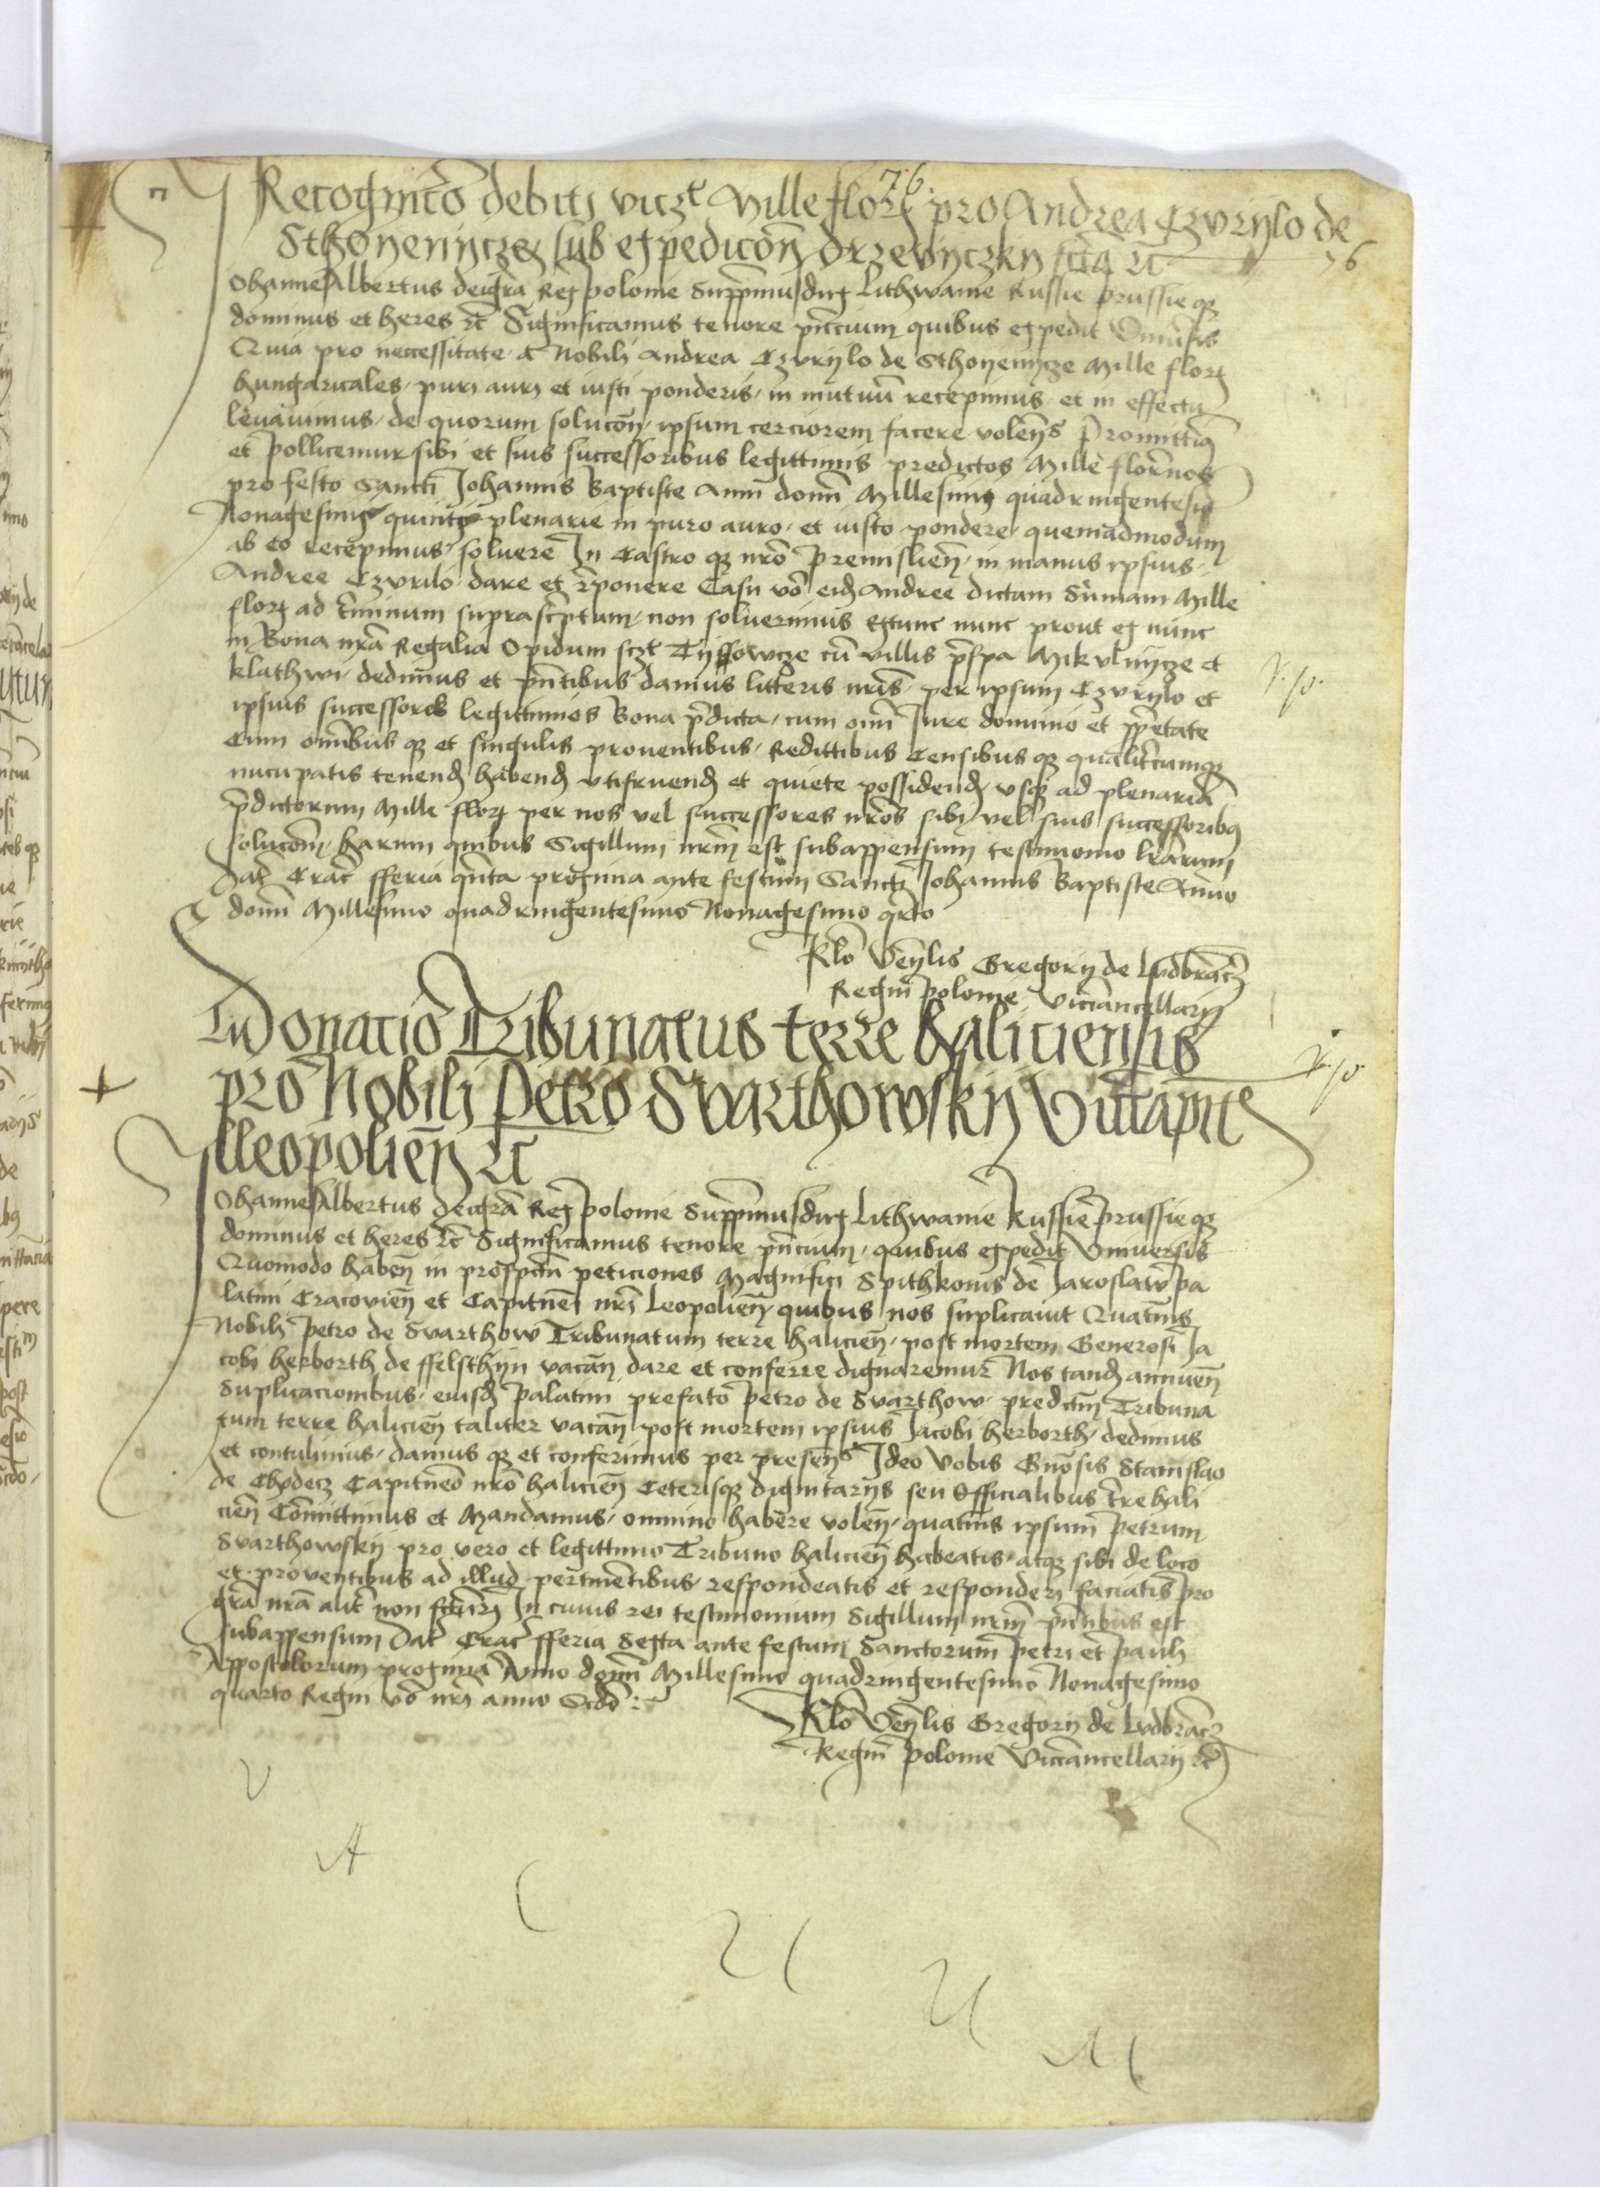 76.
Recognicio debiti viczt Mille flor pro Andrea Czvrylo de
Sthoyenycze sub expedicon drzevyczky fcta etc
76
Johannes Albertus dei gra Rex polonie Suppremus dux Lithwanie Russie prussie qz
dominus et heres etc Significamus tenore pntium quibus expedit Vniusis
Quia pro neccessitate a Nobili Andrea Czvrylo de Sthoyenycze Mille flor
hungaricales puri auri et iusti ponderis in mutuu recepimus et in effectu
leuauimus de quorum solucon ipsum cerciorem facere volens Promittim
et pollicemur sibi et suis successoribus legittimis predictos Mille florenos
pro festo Sancti Johannis Baptiste Anni domi Millesimi quadringentesi
Nonagesimi quinti plenarie in puro auro et iusto pondere quemadmodum
ab eo recepimus soluere In Castro qz nro Premislien in manus ipsius
Andree Czvrilo dare et reponere Casu vo eidz Andree dictam Sumam Mille
flor ad terminum suprascriptum non soluerimus Extunc nunc prout ex nunc
in Bona nra Regalia Opidum sczt Tyssowcze cu villis Mikvlnycze et
klathwi dedimus et pntibus damus litteris nris per ipsum Czvrylo et
ipsius successores legittimos Bona pdicta cum omi Jure dominio et pprietate
Cum omibus qz et singulis prouentibus Redittibus Censibus qz qualitercumqz
nucupatis tenendz habendz vtifruendz et quiete possidendz vsqz ad plenariam
pdictorum Mille flor per nos vel successores nros sibi vel suis successoribus
solucom harum quibus Sigillum nrm est subappensum testimonio lrarum
Dat Crac fferia qnta proxima ante festum Sancti Johannis Baptiste Anno
domi Millesimo quadringentesimo Nonagesimo qrto
Rlo Venlis Gregorij de Lvdbracz
Regni polonie Vicecancellarij
Donacio Tribunatus terre haliciensis
pro Nobili Petro Svarthowskij Vicecapite
lleopolien etc
Johannes Albertus dei gra Rex polonie Suppremus dux Lithwanie Russie prussie qz
dominus et heres etc Significamus tenore pntium quibus expedit Vniuersis
Quomodo haben in prospctm peticiones Magnifici Spithkonis de Jaroslaw pa
latini Cracovien et Capitnei nri Leopolien quibus nos suplicauit Quatnus
Nobili Petro de Svarthow Tribunatum terre halicien post mortem Generosi Ja
cobi herborth de ffelsthyn vacan dare et conferre dignaremur Nos tandz annuen
Suplicacionibus eiusdz palatini prefato Petro de Svarthow predictm Tribuna
tum terre halicien taliter vacan post mortem ipsius Jacobi herborth dedimus
et contulimus damus qz et conferimus per presens Ideo Vobis Gnosis Stanislao
de Chodecz Capitneo nro halicien Ceterisqz dignitarijs seu Officialibus tre hali
cien Comittimus et Mandamus omnino habere volen quatnus ipsum Petrum
Svarthowskij pro vero et legittimo Tribuno halicien habeatis atqz sibi de loco
et proventibus ad illud pertinentibus respondeatis et responderi faciatis pro
gra nra alit non fcturi In cuius rei testimonium Sigillum nrm pntibus est
subappensum Dat Crac fferia Sexta ante festum Sanctorum Petri et Pauli
Appostolorum proxima Anno domi Millesimo quadringentesimo Nonagesimo
quarto Regni vo nri anno Scdo
Rlo Venlis Gregorij de Lvdbracz
Regni polonie Vicecancellarij etc
V A C U U M